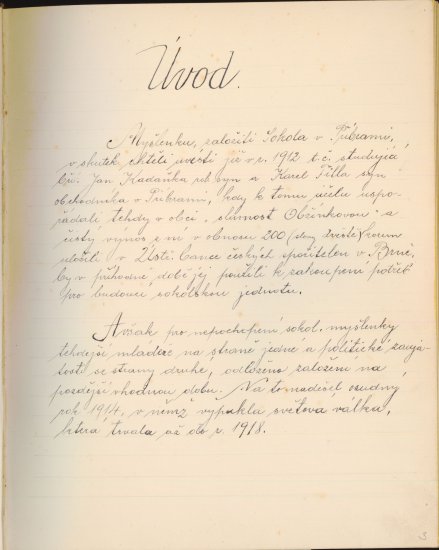 Úvod.
Myšlenku, založiti Sokola v Příbrami,
v skutek chtěli uvésti již v r. 1912 t. č. studující
Jan Kadaňka syn a Karel Fiala syn
obchodníka v Příbrami, kdy k tomu účelu uspo-
řádali tehdy v obci „slavnost Obžinkovou" a
čistý výnos z ní v obnosu 200 (slovy dvěstě) korun
uložili v Ústř. bance českých spořitelen v Brně,
by v příhodné době jej použili k zakoupení potřeb
pro budoucí sokolskou jednotu.
Avšak pro nepochopení sokol. myšlenky
tehdejší mládeže na straně jedné a politické zauja-
tosti se strany druhé, odloženo založení na
pozdější vhodnou dobu. Na to nadešel osudný
rok 1914, v němž vypukla světová válka,
která trvala až do r. 1918.
3